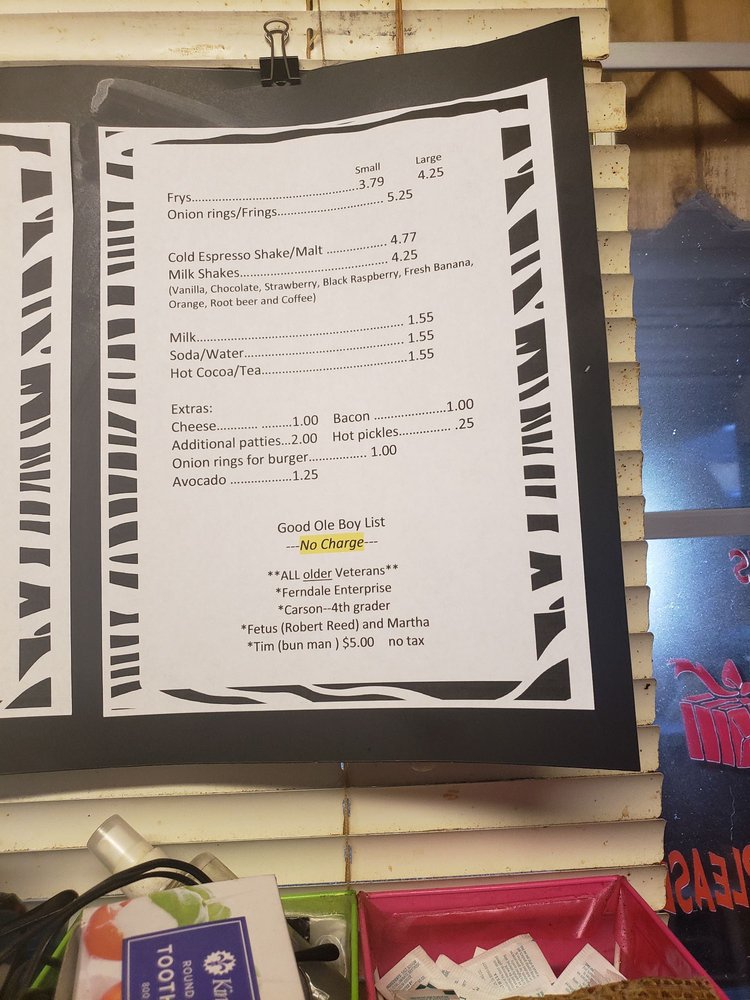 Small Large
Frys..........................................3.79 4.25
Onion rings/Frings.......................... 5.25
Cold Espresso Shake/Malt ............... 4.77
Milk Shakes.................................... 4.25
(Vanilla, Chocolate, Strawberry, Black Raspberry, Fresh Banana,
Orange, Root beer and Coffee)
Milk.................................................... 1.55
Soda/Water......................................... 1.55
Hot Cocoa/Tea.....................................1.55
Extras:
Cheese............ .........1.00 Bacon ......................1.00
Additional patties...2.00 Hot pickles............... .25
Onion rings for burger................ 1.00
Avocado ..................1.25
Good Ole Boy List
---No Charge---
**ALL older Veterans**
*Ferndale Enterprise
*Carson--4th grader
*Fetus (Robert Reed) and Martha
*Tim (bun man ) $5.00 no tax
PLEAS
ROUND
TOOTH
800